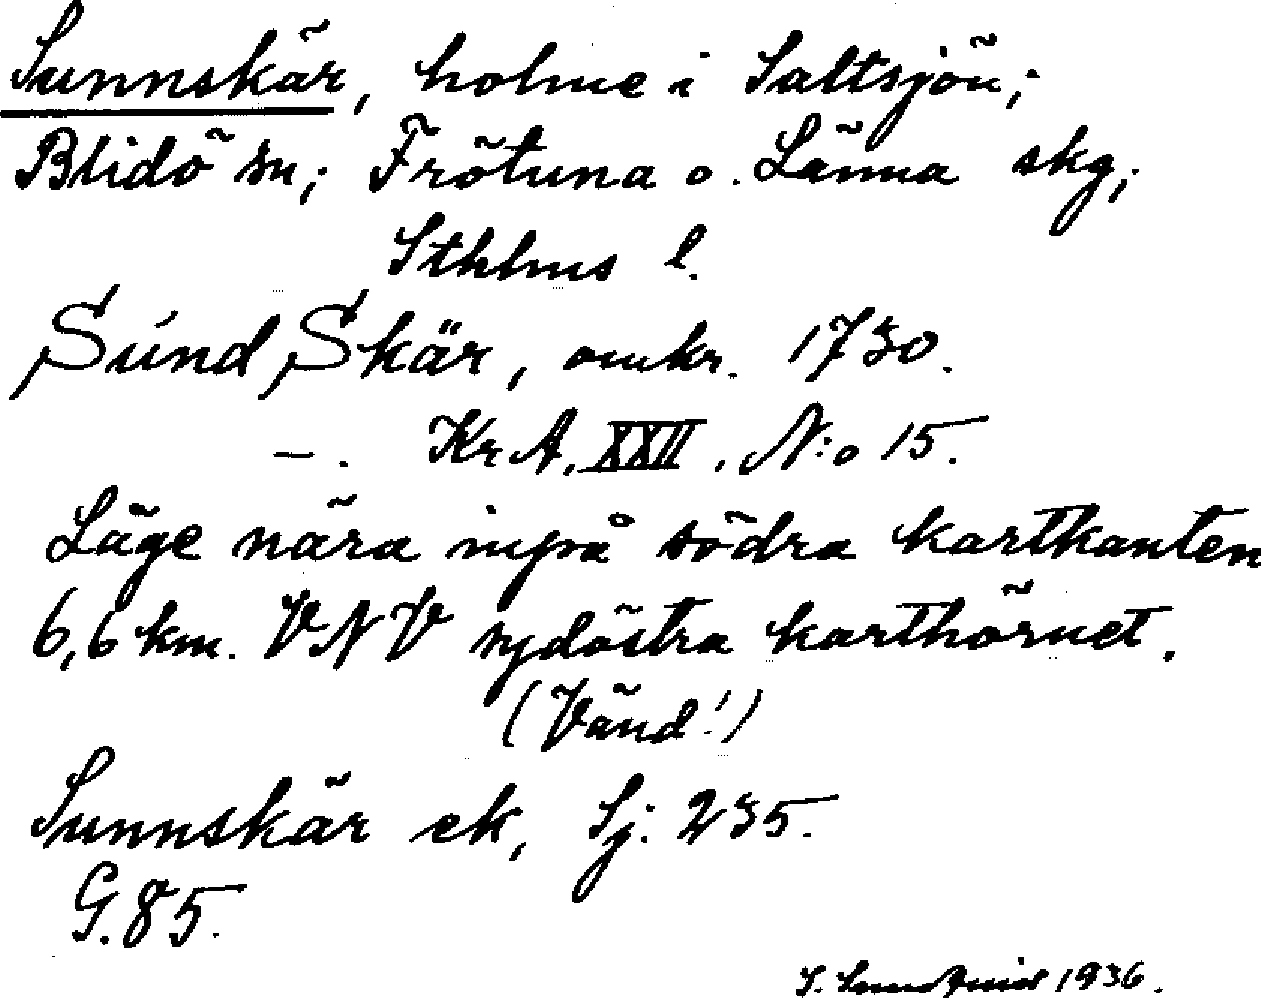 Sunnskär, holme i Saltsjön;
Blidö sn; Frötuna o. Länna skg;
Sthlms l.
Sund Skär, omkr. 1730.
–. KrA. XXII. N:o 15.
Läge nära inpå södra kartkanten
6,6 km. VNV sydöstra karthörnet.
(Vänd!)
Sunnskär ek, Sj. 235.
G. 85.
1936.